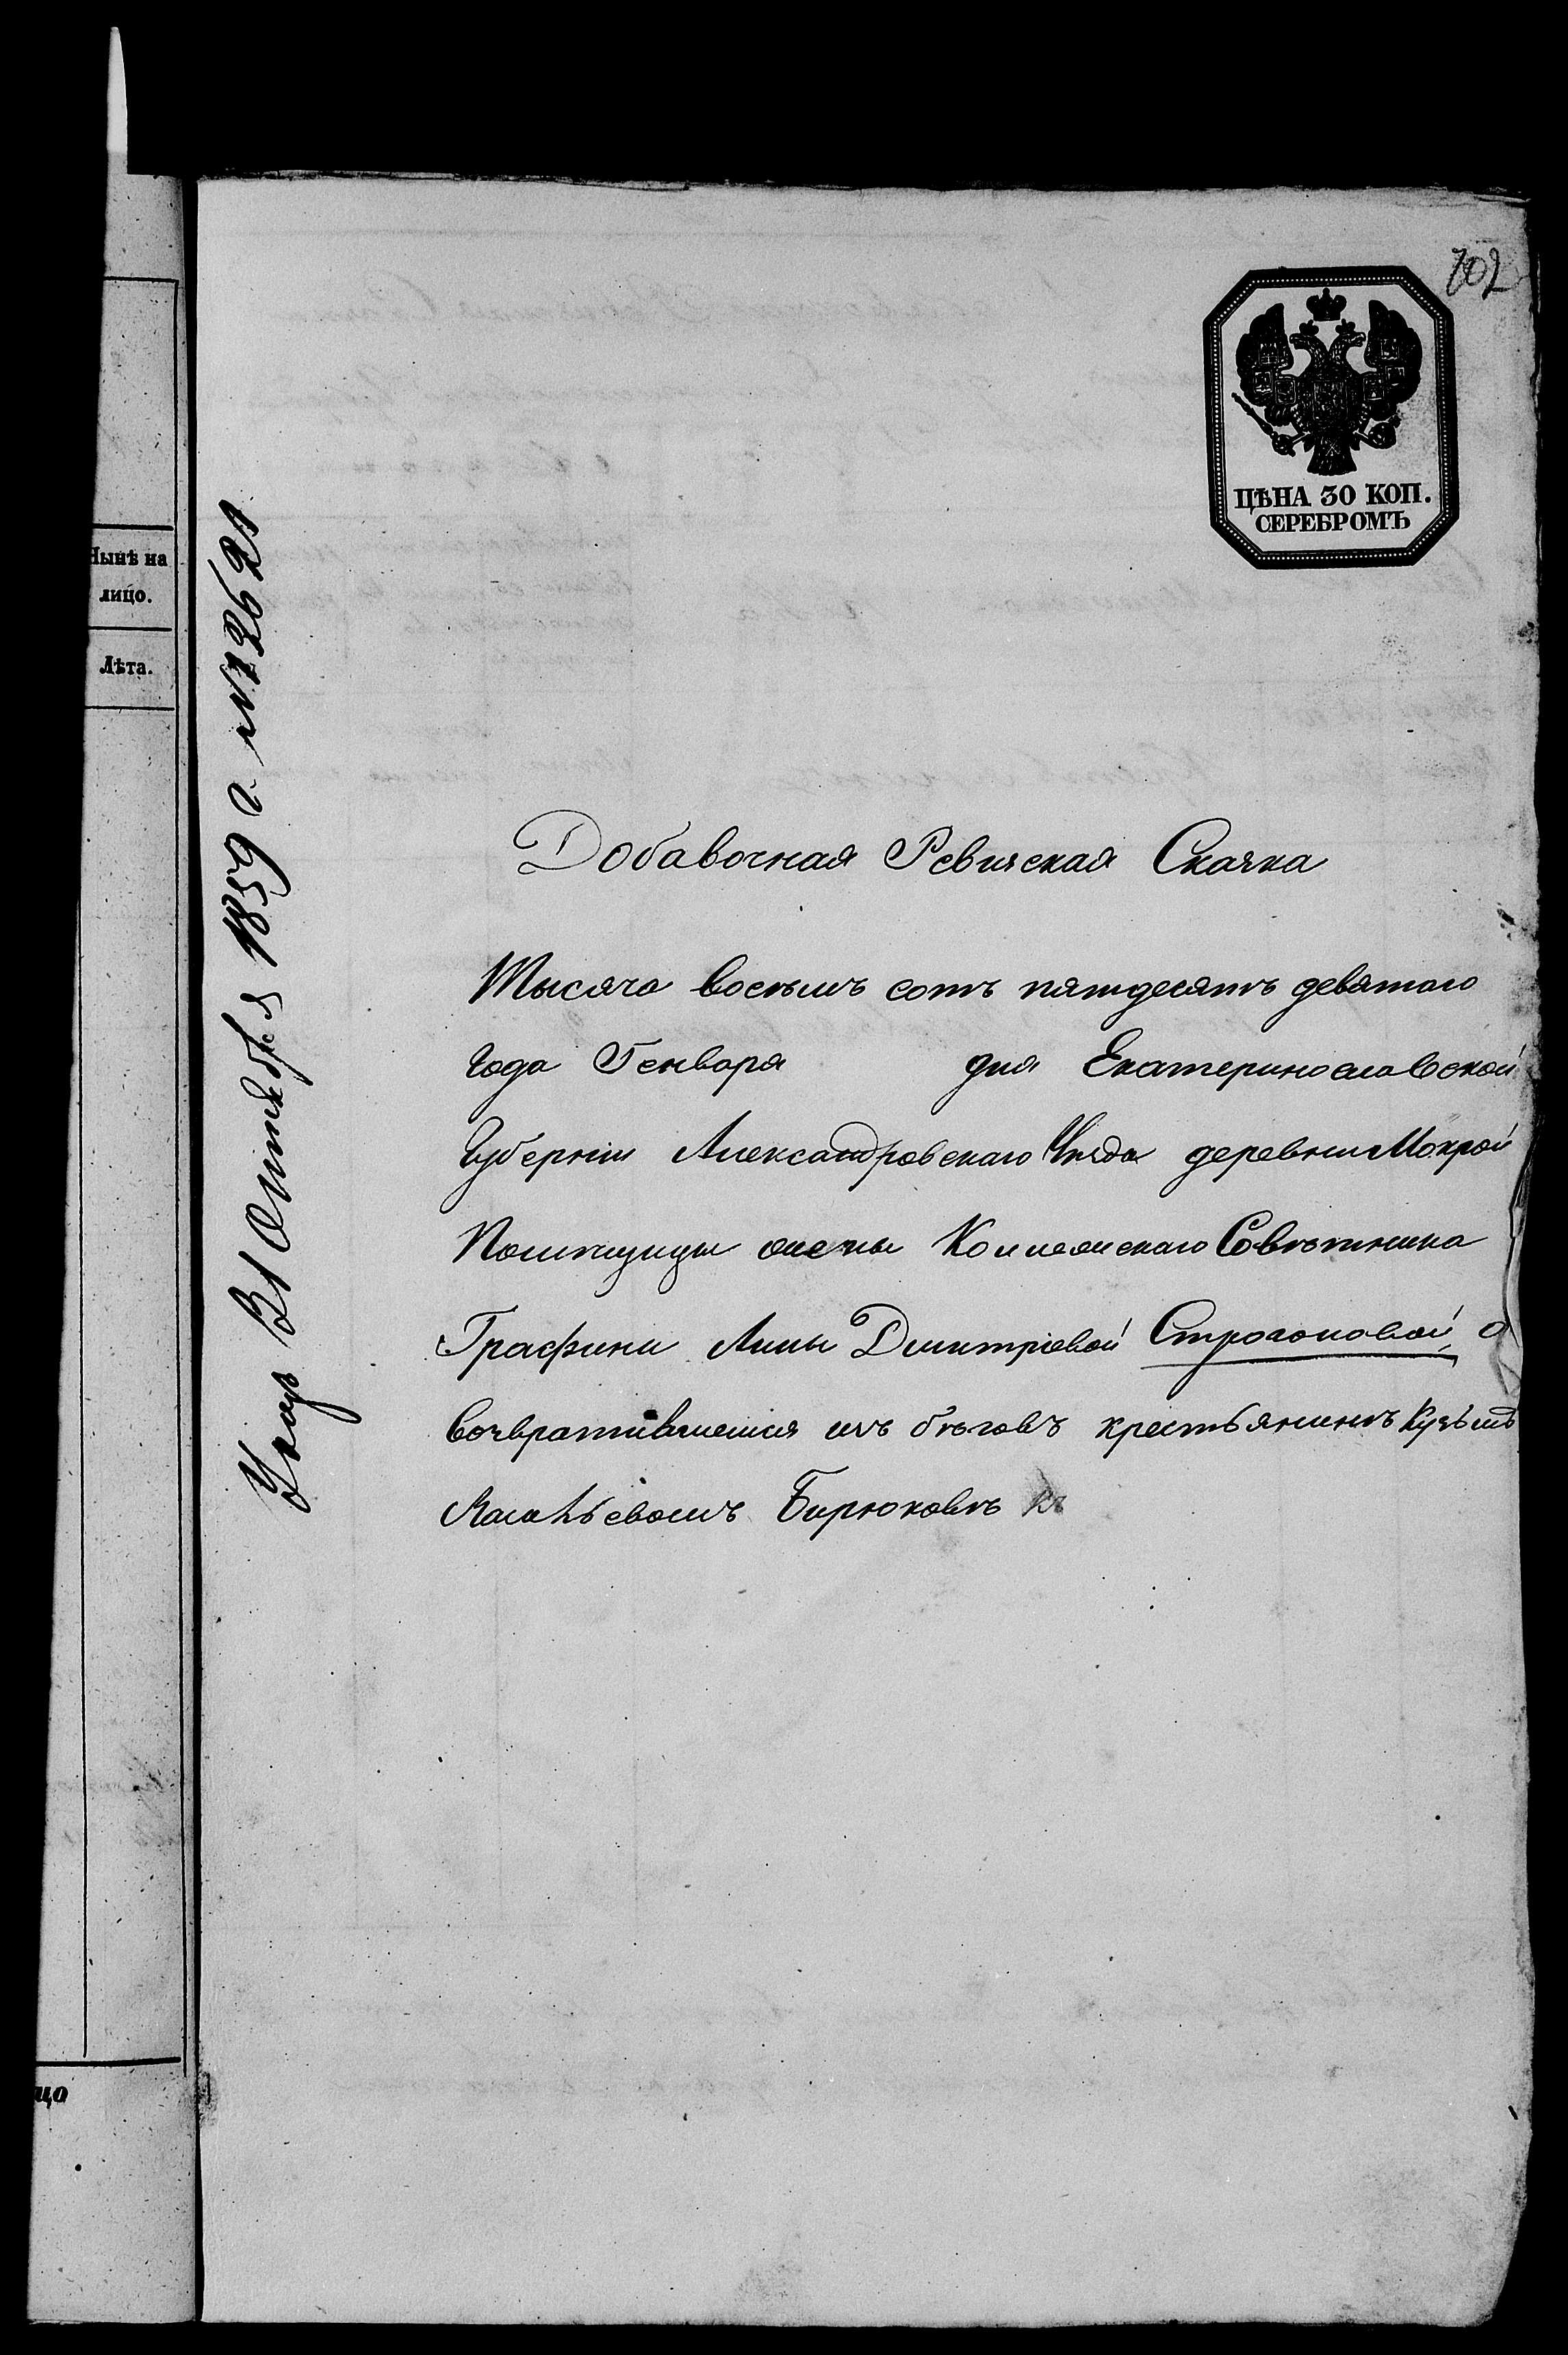 702
ЦѢНА 30 КОП.
СЕРЕБРОМЪ
Нынѣ на
лицо.
Лѣта.
Указ 31 Октября 1859 г №
Добавочная Ревизская Сказка
Тысяча восемь сотъ пятдесятъ девятаго
Года Генваря дня Екатеринославской
Губерніи Александровскаго Уѣзда деревни Мокрой
Помѣщицы жены Коллежскаго Совѣтника
Графини Анны Дмитріевой Строгоновой, о
возвратившемся изъ бѣговъ крестьянинѣ Кузьмѣ
Бирюковѣ
цо